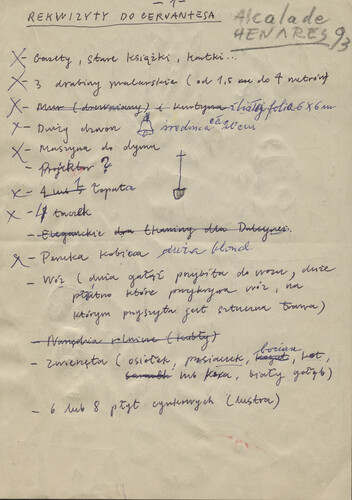 - 1 -
REKWIZYTY DO CERVANTESA
Alcala de
HENARES 93
X - Gazety, stare książki, kartki...
X - 3 drabiny malarskie (od 1,5 m do 4 metrów)
X - Mur (drewniany) i kurtyna z białej folii 6x6m
X - Duży dzwon średnica ca 20 cm
X - Maszyna do dymu
- Projektor ?
X - 4 lub 1 łopata
X - 4 tacek
- Eleganckie dla Dulcynei.
X - Peruka kobieca duża blond
- Wóz (duża gałąź przybita do wozu, duże
płótno które przykrywa wóz, na
którym przyszyta jest sztuczna trawa)
- Narzędzia rolnicze (kosy)
- Zwierzęta (osiołek, prosiaczek, bocian, kot,
lub koza, biały gołąb)
- 6 lub 8 płyt cynkowych (lustra)